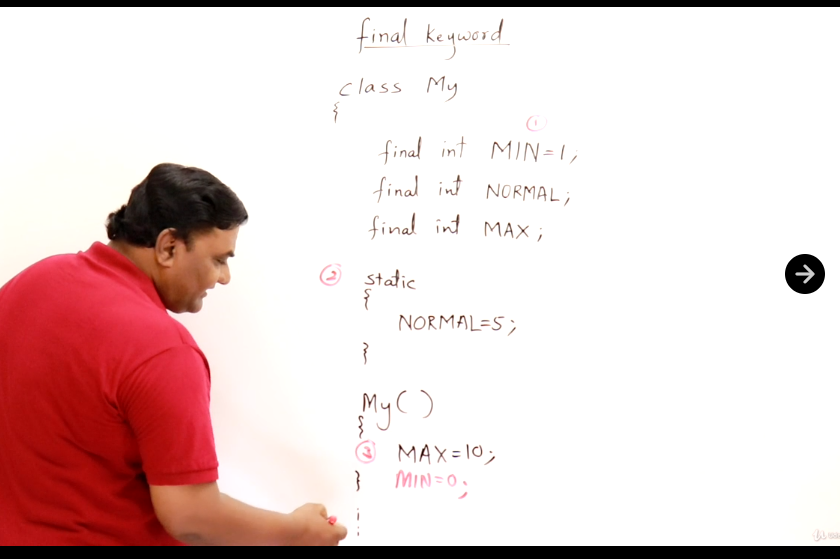 final keyword
class My
{
①
final int MIN=1;
final int NORMAL;
final int MAX;
② static
{
NORMAL=5;
}
My( )
{
③ MAX=10;
} MIN=0;